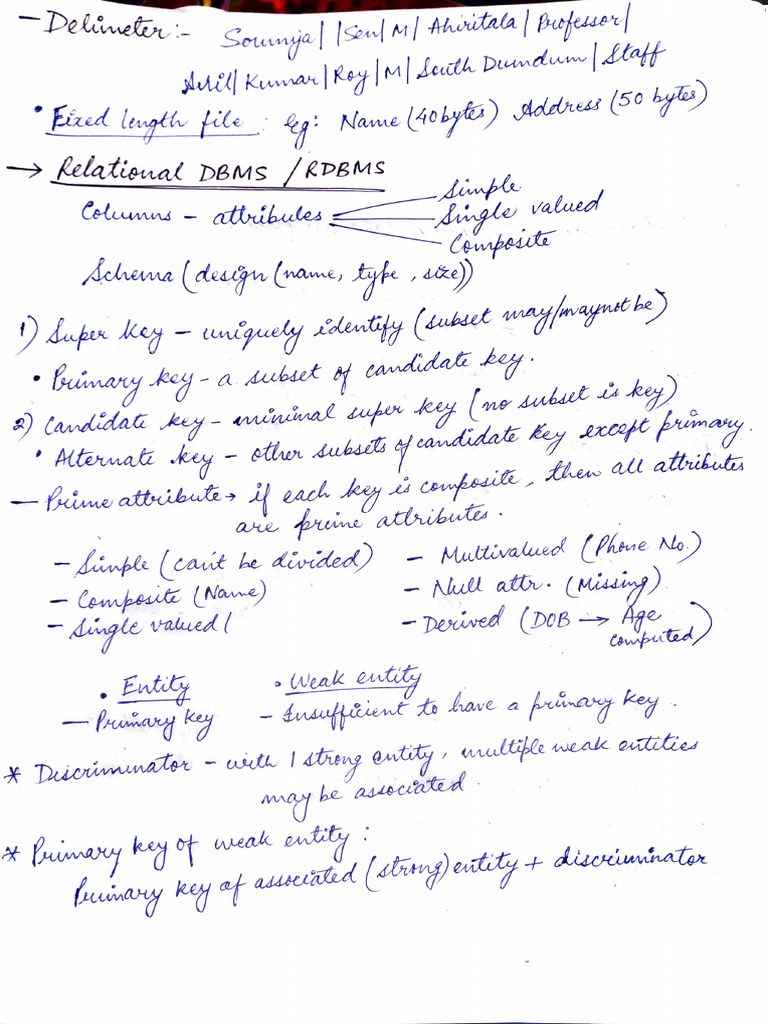 — Delimeter:- Soumija| |Sen|M| Ahiritala|Professor|
Anil|Kumar|Roy|M|South Dumdum|Staff
• Fixed length file: Eg: Name (40bytes) Address (50 bytes)
→ Relational DBMS / RDBMS
Columns – attributes Simple
Single valued
Composite
Schema (design (name, type, size))
1) Super key – uniquely identify (subset may/maynot be)
• Primary key – a subset of candidate key.
2) Candidate key – minimal super key (no subset is key)
• Alternate key – other subsets of candidate key except primary.
— Prime attribute → if each key is composite, then all attributes
are prime attributes.
– Simple (can't be divided) – Multivalued (Phone No.)
– Composite (Name) – Null attr. (Missing)
– Single valued ( – Derived (DOB → Age
computed)
• Entity • Weak entity
— Primary key – Insufficient to have a primary key.
* Discriminator – with 1 strong entity, multiple weak entities
may be associated.
* Primary key of weak entity:
Primary key of associated (strong) entity + discriminator